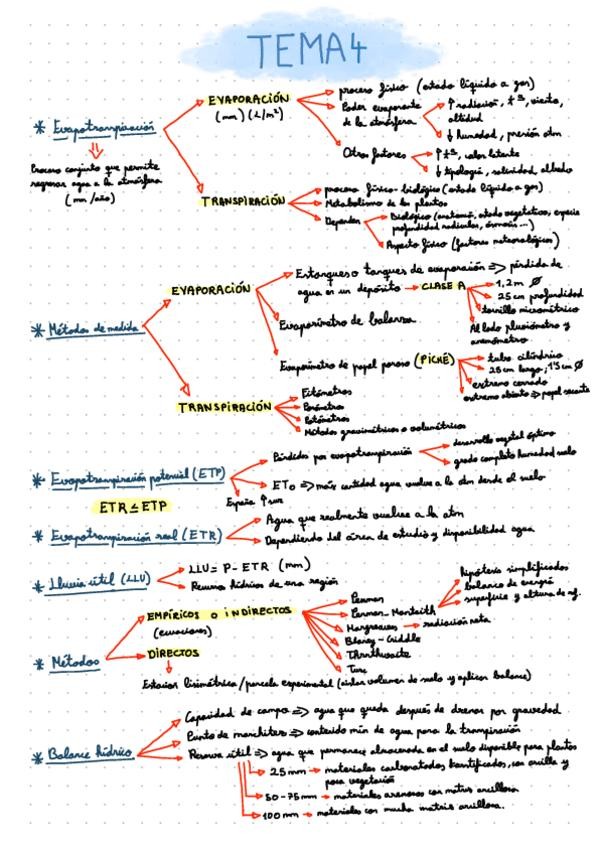 TEMA 4
* Evapotranspiración
Proceso conjunto que permite
regresar agua a la atmósfera
(mm/año)
EVAPORACIÓN
(mm) (L/m²)
proceso físico (estado líquido a gas)
Poder evaporante
de la atmósfera
↑ radiación, tª, viento,
altitud
↓ humedad, presión atm
Otros factores
↑ tª, calor latente
↓ tipología, salinidad, albedo
TRANSPIRACIÓN
proceso físico-biológico (estado líquido a gas)
Metabolismo de las plantas
Dependen
Biológico (anatomía, estado vegetativo, especie
profundidad radicular, ósmosis...)
Aspecto físico (factores meteorológicos)
* Métodos de medida
EVAPORACIÓN
Estanques o tanques de evaporación => pérdida de
agua en un depósito → CLASE A
1,2 m Ø
25 cm profundidad
tornillo micrométrico
Al lado pluviómetro y
anemómetro
Evaporímetro de balanza
Evaporímetro de papel poroso (PICHÉ)
tubo cilíndrico
25 cm largo, 1'5 cm Ø
extremo cerrado
extremo abierto => papel secante
TRANSPIRACIÓN
Fitómetros
Porómetros
Potómetros
Métodos gravimétricos o volumétricos
* Evapotranspiración potencial (ETP)
Pérdidas por evapotranspiración
desarrollo vegetal óptimo
grado completo humedad suelo
ET₀ => más cantidad agua vuelve a la atm desde el suelo
España ↑ sur
ETR ≤ ETP
* Evapotranspiración real (ETR)
Agua que realmente vuelve a la atm
Dependiendo del área de estudio y disponibilidad agua
* Lluvia útil (LLU)
LLU = P - ETR (mm)
Recursos hídricos de una región
* Métodos
EMPÍRICOS o INDIRECTOS
(ecuaciones)
Penman
Penman-Monteith
hipótesis simplificadas
balance de energía
superficie y altura de ref.
Hargreaves → radiación neta
Blaney-Criddle
Thornthwaite
Turc
DIRECTOS
Estación lisimétrica / parcela experimental (aislar volumen de suelo y aplicar balance)
* Balance hídrico
Capacidad de campo => agua que queda después de drenar por gravedad
Punto de marchitez => contenido mín de agua para la transpiración
Reserva útil => agua que permanece almacenada en el suelo disponible para plantas
25 mm → materiales carbonatados karstificados, con arcilla y
poca vegetación
50-75 mm → materiales arenosos con matriz arcillosa
100 mm → materiales con mucha matriz arcillosa.